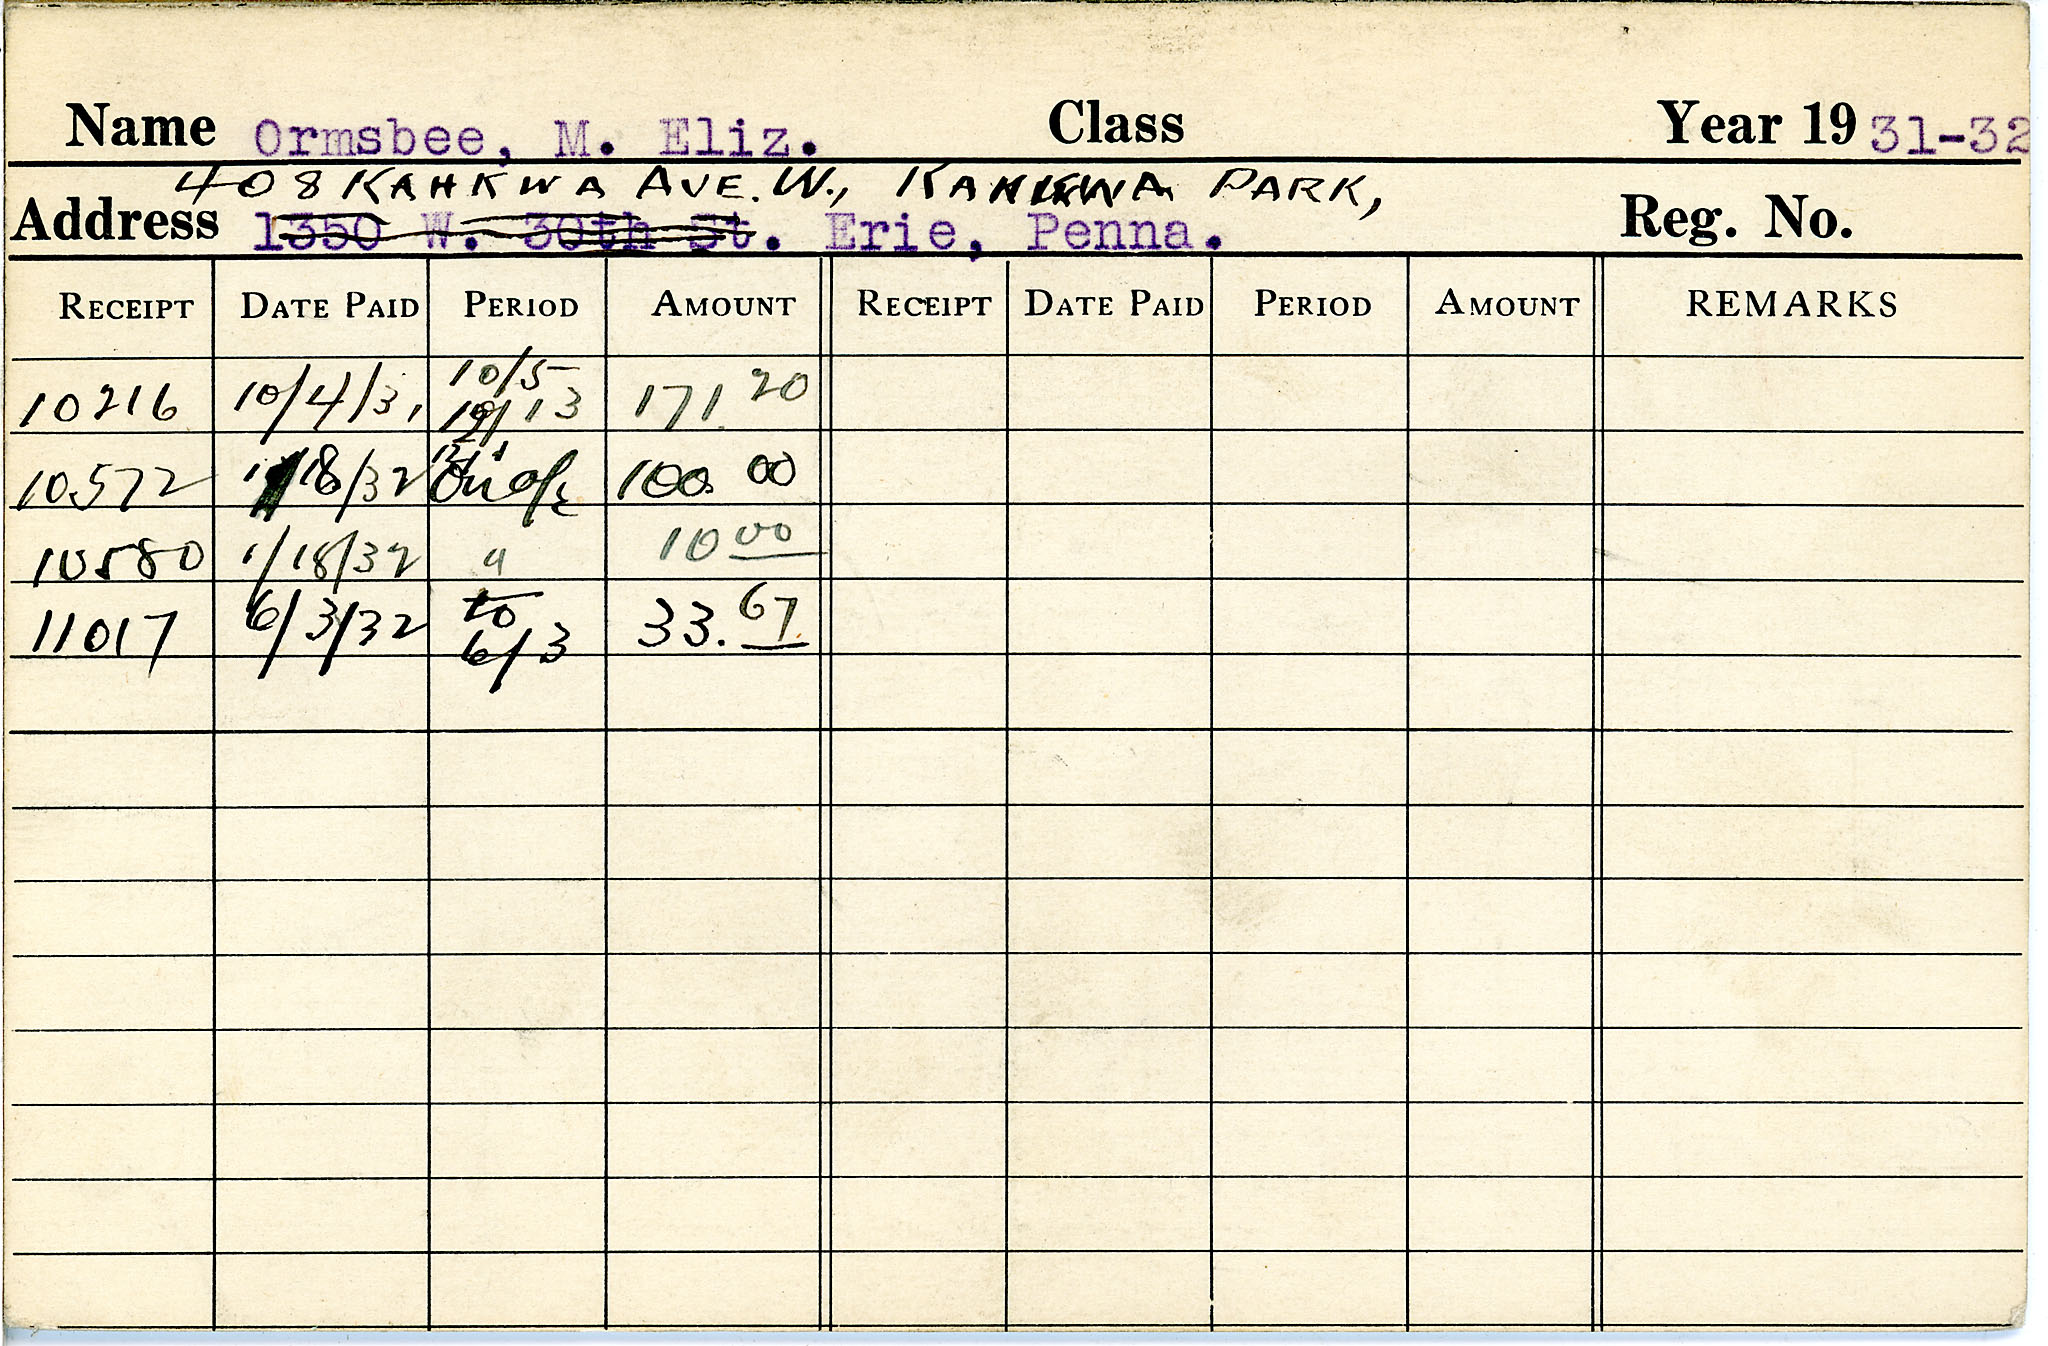 Name Ormsbee, M. Eliz. Class Year 19 31-32
408 KAHKWA AVE. W., KAHKWA PARK,
Address 1350 W. 30th St. Erie, Penna. Reg. No.
RECEIPT DATE PAID PERIOD AMOUNT RECEIPT DATE PAID PERIOD AMOUNT REMARKS
10/5
10216 10/4/31 12/13 171 20
10572 1/18/32 On a/c 100 00
10580 1/18/32 " 10 00
to
11017 6/3/32 6/3 33.67